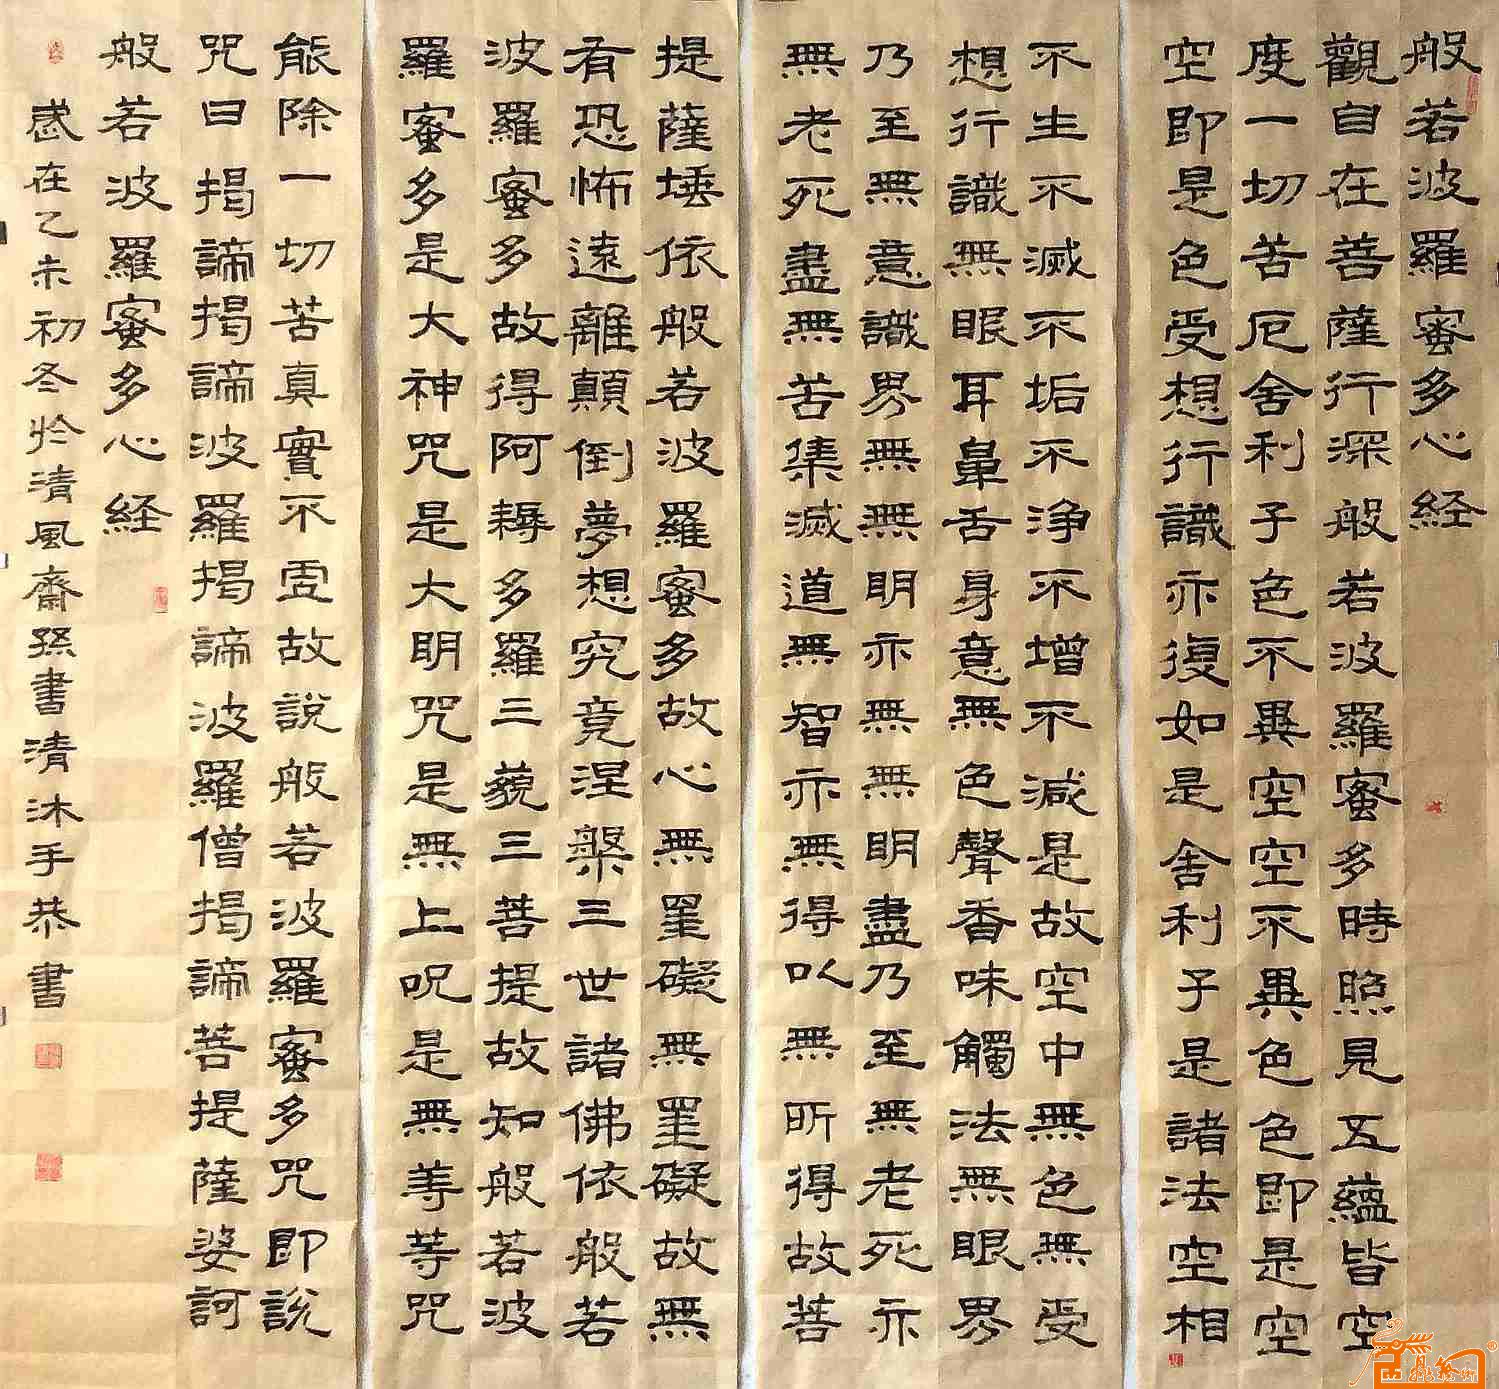 般若波羅蜜多心経
觀自在菩薩行深般若波羅蜜多時照見五蘊皆空
度一切苦厄舍利子色不異空空不異色色即是空
空即是色受想行識亦復如是舍利子是諸法空相
不生不滅不垢不净不增不減是故空中無色無受
想行識無眼耳鼻舌身意無色聲香味觸法無眼界
乃至無意識界無無明亦無無明盡乃至無老死亦
無老死盡無苦集滅道無智亦無得以無所得故菩
提薩埵依般若波羅蜜多故心無罣礙無罣礙故無
有恐怖遠離顛倒夢想究竟涅槃三世諸佛依般若
波羅蜜多故得阿耨多羅三藐三菩提故知般若波
羅蜜多是大神咒是大明咒是無上呪是無等等咒
能除一切苦真實不虛故說般若波羅蜜多咒即說
咒曰揭諦揭諦波羅揭諦波羅僧揭諦菩提薩婆訶
般若波羅蜜多心経
歲在乙未初冬於清風齋孫書清沐手恭書